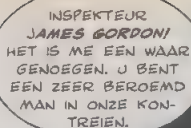 INSPEKTEUR
JAMES GORDON!
HET IS ME EEN WAAR
GENOEGEN. U BENT
EEN ZEER BEROEMD
MAN IN ONZE KON-
TREIEN.